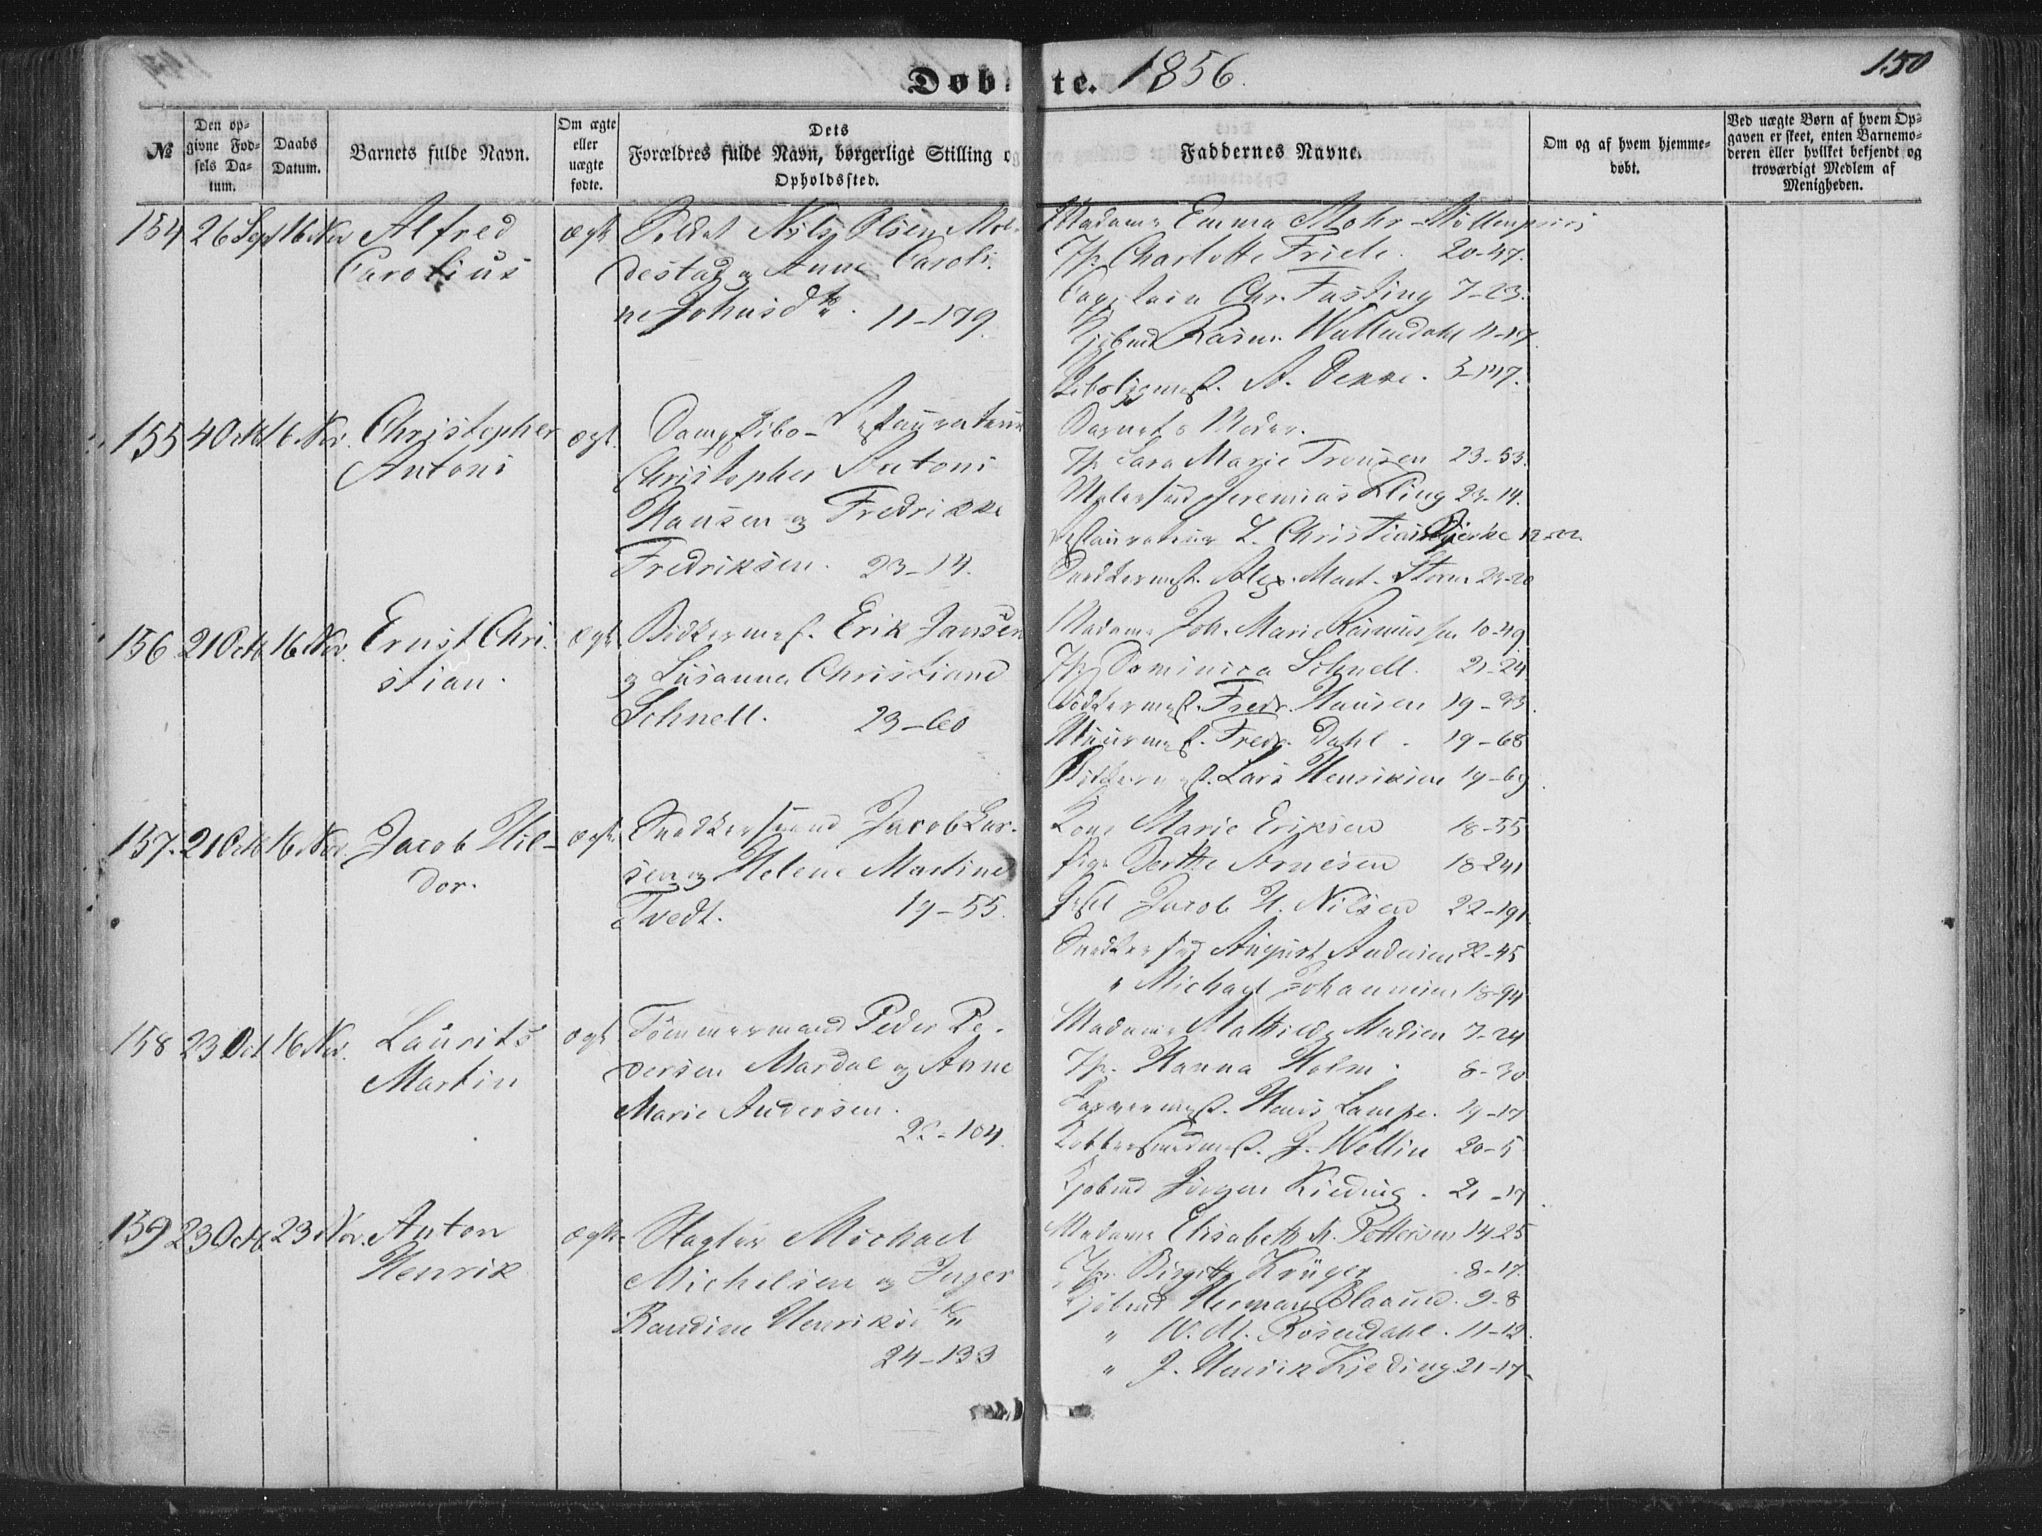 Døbte. 1856.
150
№
Den opgivne Fødsels Datum.
Daabs Datum.
Barnets fulde Navn.
Om ægte eller uægte fødte.
Dets Forældres fulde Navn, borgerlige Stilling og Opholdssted.
Faddernes Navne.
Om og af hvem hjemmedøbt.
Ved uægte Børn af hvem Opgaven er skeet, enten Barnemoderen eller hvilket bekjendt og troværdigt Medlem af Menigheden.
154 26 Sept 16 Nov Alfred Carolius ægte
Soldat Nils Olsen Mol-
destad og Anne Caroli-
ne Johnsdtr. 11-179
Madame Emma Mohr - Møllenpriis
Jfr Charlotte Friele. 20-47.
Capitain Chr. Fasting 7-23.
Kjøbmd Rasm. Wallendahl 11-17
A. Dekke. 3-147.
155 4 Octb 16 Nov. Christopher Antoni ægt.
Dampskibs- Restaurateur
Christopher Antoni
Hansen og Fredrikke
Fredriksen. 23-14.
Barnets Moder.
Jfr Sara Marie Tronsen 23-53.
Malersvd Jeremias Kling 23-14.
Restaurateur L. Christian Bjerke 12-22.
Snedkermest. Alex. Mart. Storm 23-20
156 21 Octb 16 Nov. Ernst Chri-
stian. ægt
Bødkermest. Erik Jansen
og Susanna Christiane
Schnell. 23-60
Madame Joh. Marie Rasmussen 10-49
Jfr Dominica Schnell. 21-24
Bødkermest. Fredr. Hansen 19-33.
Muurmest. Fredr. Dahl. 19-68
Bødkermest. Lars Henriksen 19-69
157. 21 Octb 16 Nov. Jacob Hil-
dor. ægte
Snedkersvend Jacob Lar-
sen og Helene Martine
Tvedt. 19-55.
Kone Marie Eriksen 18-55
Pige Dorthe Arnesen 18-241
Jacob H. Nilsen 22-191
Snedkersvd August Andersen 22-45
" Michael Johannesen 18-94
158 23 Oct 16 Nov. Laurits
Martin ægt
Tømmermand Peder Pe-
dersen Mardal og Anne
Marie Andersen.
22-104.
Madame Mathilde Madsen 7-24
Jfr. Hanna Holm. 8-30
Garvermest. Hans Lampe. 19-17
Kobbersmedmest. J. Wellin 20-5
Kjøbmd Jørgen Kieding. 21-17.
159 23 Octb. 23 Nov. Anton
Henrik ægte
Slagter Michael
Michelsen og Inger
Randine Henriksdtr
24-133
Madame Elisabeth M. Pettersen 14-25
Jfr. Birgitte Krüger. 8-17.
Kjøbmd Herman Blaauw. 9-8
" W. M. Rosendahl. 11-12.
" J. Henrik Kjeding 21-17.